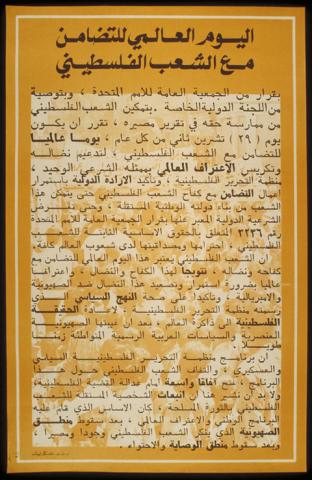 اليوم العالمي للتضامن
مع الشعب الفلسطيني
بقرار من الجمعية العامة للأمم المتحدة ، وبتوصية
من اللجنة الدولية الخاصة . بتمكين الشعب الفلسطيني
من ممارسة حقه في تقرير مصيره ، تقرر أن يكون
يوم ( ٢٩ ) تشرين ثاني من كل عام ، يوما عالميا
للتضامن مع الشعب الفلسطيني ، لتدعيم نضاله
وتكريس الاعتراف العالمي بممثله الشرعي الوحيد ،
منظمة التحرير الفلسطينية ، وتأكيد الارادة الدولية باستمرار
اعمال التضامن مع كفاح الشعب الفلسطيني حتى يتمكن هذا
الشعب من بناء دولته الوطنية المستقلة ، وحتى
الشرعية الدولية المعبر عنها بقرار الجمعية العامة للأمم المتحدة
رقم ٣٢٣٦ المتعلق بالحقوق الأساسية الثابتة للشعب
الفلسطيني ، احترامها ومصداقيتها لدى شعوب العالم كافة .
أن الشعب الفلسطيني يعتبر هذا اليوم العالمي للتضامن مع
كفاحه ونضاله ، تتويجا لهذا الكفاح والنضال ، واعترافا
عالميا بضرورة استمرار وتصعيد هذا النضال ضد الصهيونية
والامبريالية ، وتأكيد على صحة النهج السياسي الذي
رسمته منظمة التحرير الفلسطينية ، لاعادة الحقيقة
الفلسطينية الى ذاكرة العالم ، بعد أن غيبتها الصهيونية
العنصرية والسياسات العربية الرسمية المتواطئة زمنا
طويلا .
أن برنامج منظمة التحرير الفلسطينية السياسي
والعسكري ، والتفاف الشعب الفلسطيني حول هذا
البرنامج ، فتح آفاقا واسعة أمام عدالة القضية الفلسطينية ،
ولا بد أن نشير هنا أن انبعاث الشخصية المستقلة للشعب
الفلسطيني بالثورة المسلحة ، كان الأساس الذي قام عليه
البرنامج الوطني والاعتراف العالمي ، بعد سقوط منطق
الصهيونية الذي ينكر الشعب الفلسطيني وجودا ومصيرا ،
وبعد سقوط منطق الوصاية والاحتواء .